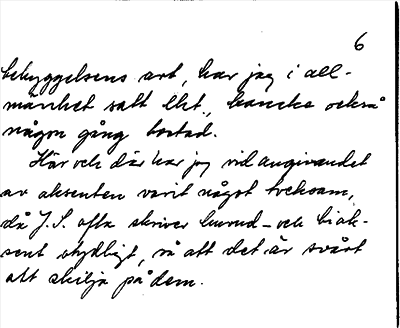 6
bebyggelsens art, har jag i all-
mänhet satt Ebt., kanske också
någon gång bostad.
Här och där har jag vid angivandet
av aksenten varit något tveksam,
då J.S. ofta skriver huvud- och biak-
sent otydligt, så att det är svårt
att skilja på dem.